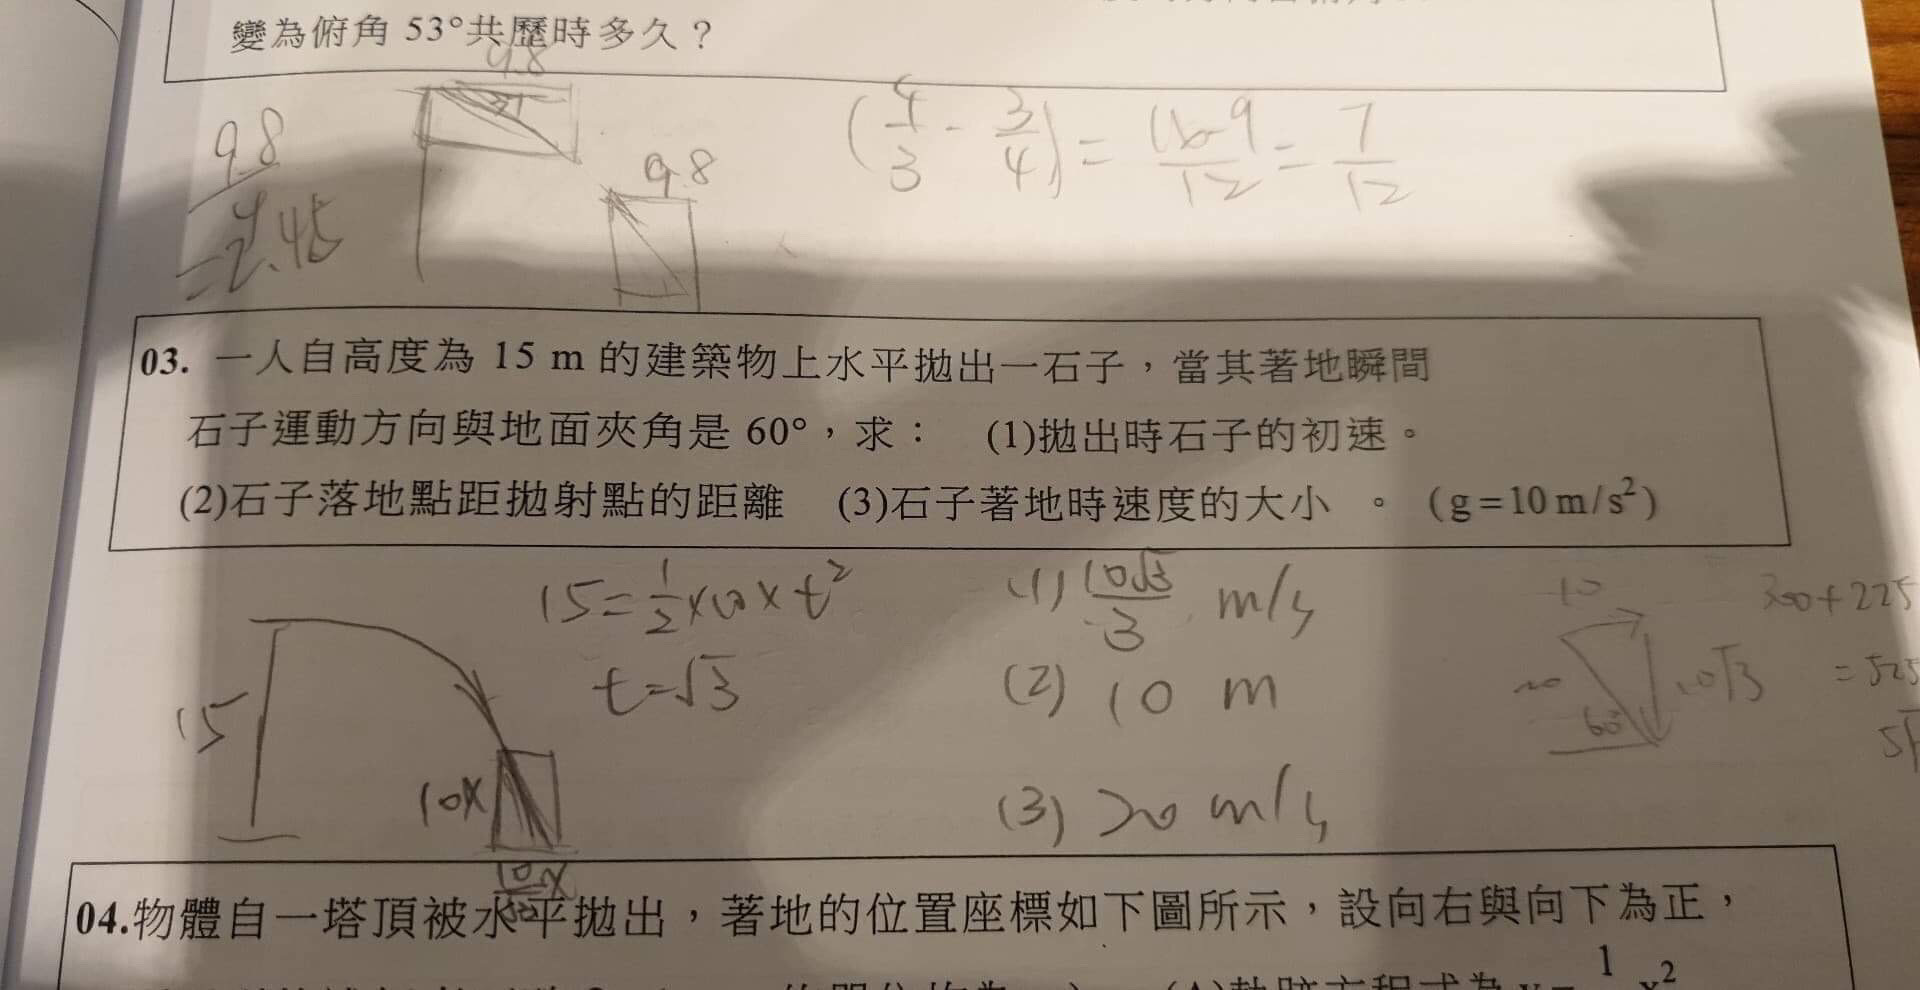 變為俯角 53°共歷時多久?
9.8
9.8
4
=2.45
9.8
(4/3 - 3/4) = 16-9/12 = 7/12
03. 一人自高度為 15 m 的建築物上水平拋出一石子，當其著地瞬間
石子運動方向與地面夾角是 60°，求： (1)拋出時石子的初速。
(2)石子落地點距拋射點的距離 (3)石子著地時速度的大小 。 (g=10 m/s²)
15=1/2×10×t²
t=√3
15
10x
(1) 10√3/3 m/s
(2) 10 m
(3) 20 m/s
10
20
10√3
60°
300+225
=525
04.物體自一塔頂被水平拋出，著地的位置座標如下圖所示，設向右與向下為正，